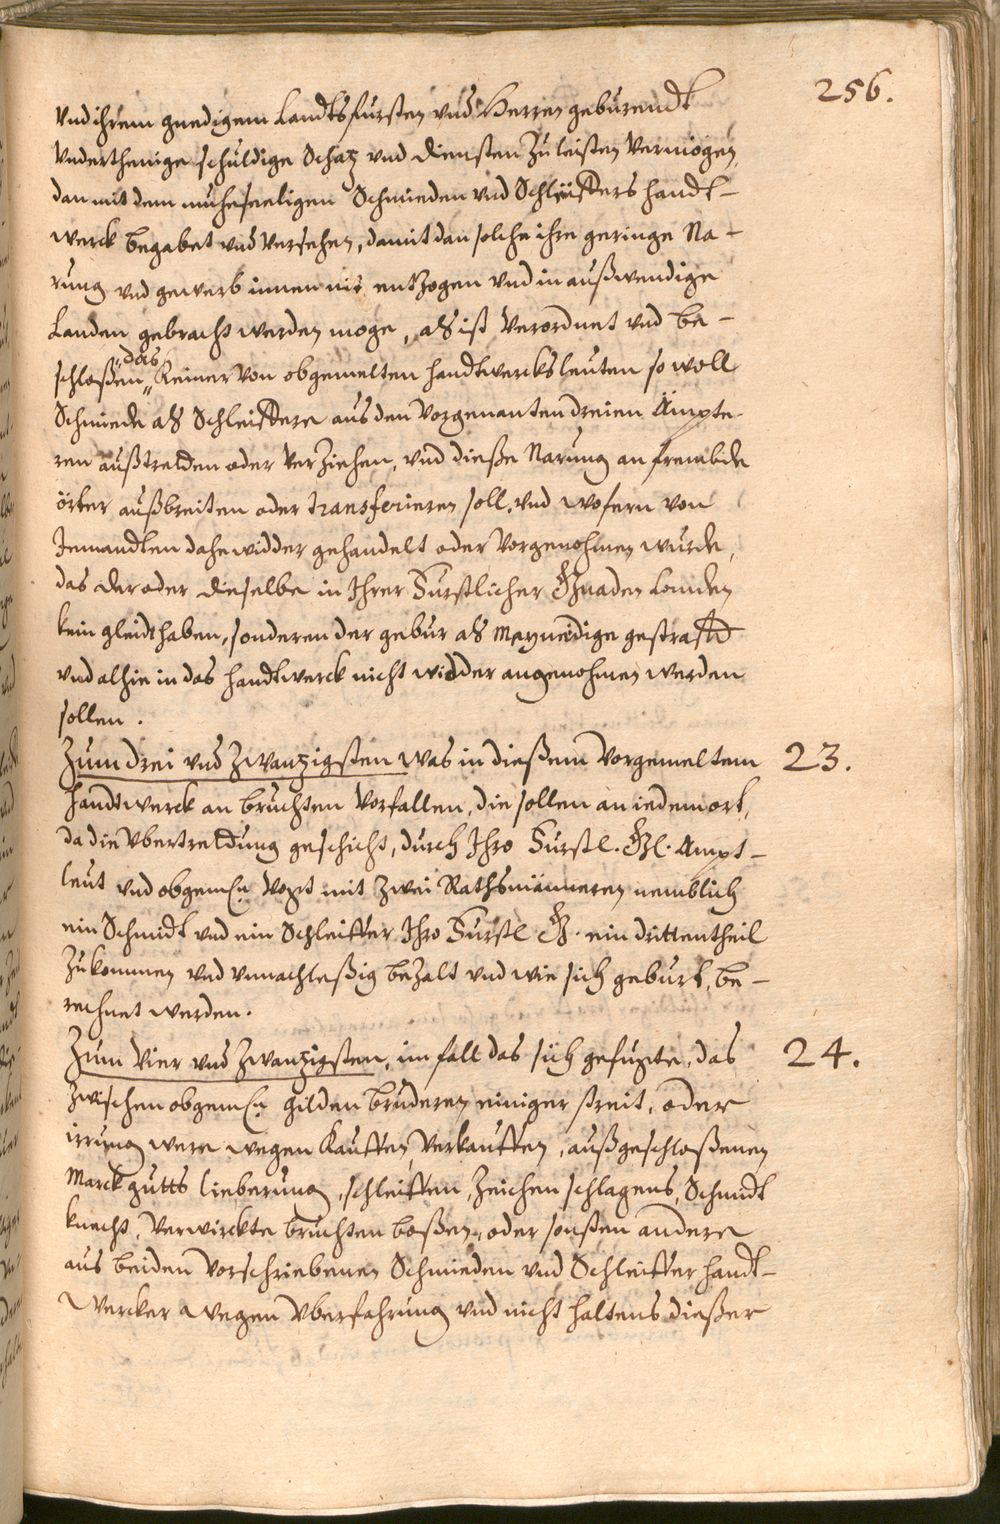 256.
Vnd ihrem gnedigem Landtsfursten vnd Herren geburendt
Vnderthenige schuldige Schatz vnd diensten Zu leisten Vermögen
dan mit dem muheseeligen Schmieden vnd Schleiffers handt-
werck begabet vnd Versehen, damit dan solche ihre geringe Na-
rung vnd gewerb innen nit entzogen vnd in außwendige
Landen gebracht werden moge, alß ist Verordnet vnd be-
schloßen das Keiner Von obgemelten handtwercksleuten so woll
Schmiede alß Schleiffere aus den Vorgenanten dreien Ämpte-
ren außtretten oder Verziehen, vnd dieße Narung an frembde
örter außbreiten oder transferieren soll, vnd wofern von
Jemandten dahe widder gehandelt oder Vorgenohmen wurde,
das der oder dieselbe in Ihrer Furstlicher Gnaden Landen
kein gleidt haben, sonderen der gebur alß Meyneidige gestrafft
vnd alhie in das handtwerck nicht widder angenohmen werden
sollen.
Zum drei vnd Zwantzigsten was in dießem Vorgemeltem 23.
handtwerck an bruchten Vorfallen, die sollen an iedem ort,
da die Vbertrettung geschicht, durch Ihro Furstl. Gl. Ampt-
leut vnd obgemln Vogt mit zwei Rathsmänneren nemblich
ein Schmidt vnd ein Schleiffer Ihro Furstl G. ein drittentheil
Zukommen vnd vnnachleßig bezalt vnd wie sich geburt, be-
rechnet werden.
Zum Vier vnd Zwantzigsten, im fall das sich gefugte, das 24.
zwischen obgemln gilden bruderen einiger streit, oder
irrung were wegen Kauffen, Verkauffen, außgeschloßenen
Marckgutts lieberung, schleiffen, Zeichen schlagens, Schmidt
knecht, Verwirckte bruchten boßen, oder sonsten andere
aus beiden Vorschriebenen Schmieden vnd Schleiffer handt-
Wercker wegen Vberfahrung vnd nicht haltens dießer